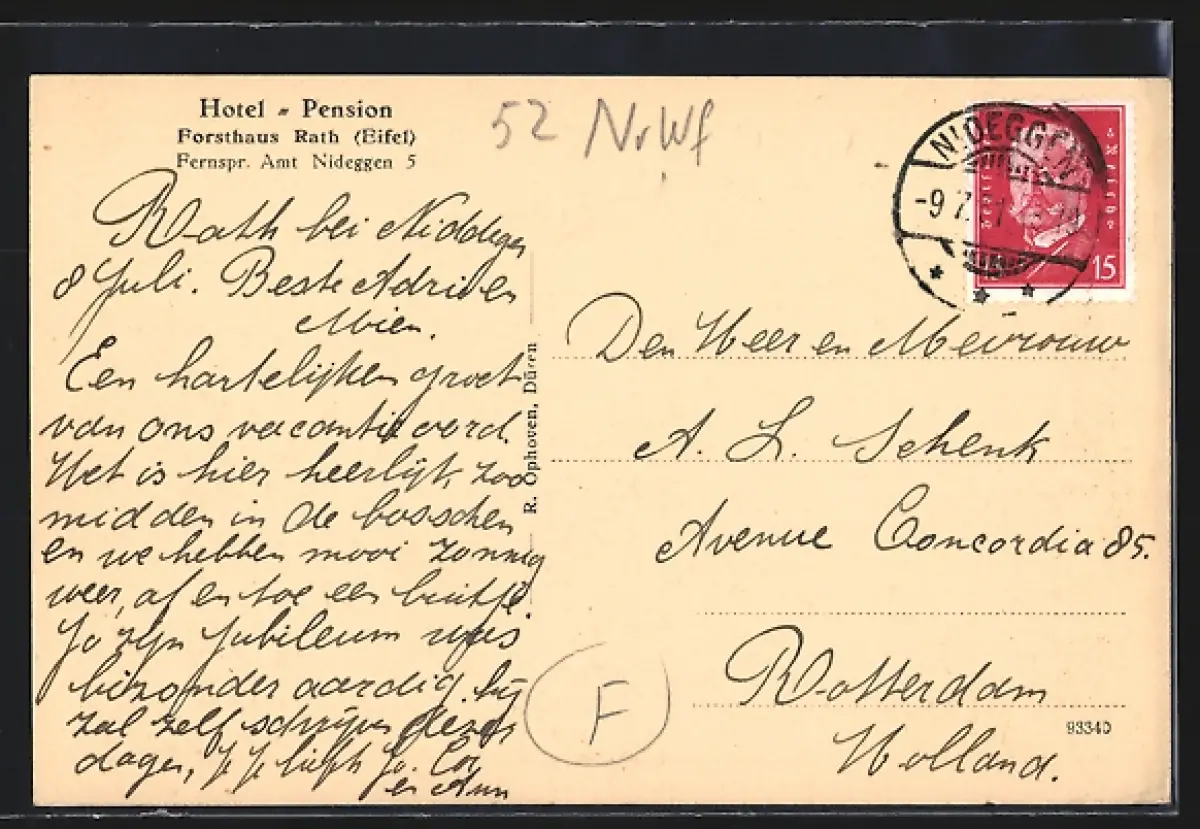 Hotel - Pension
Forsthaus Rath (Eifel)
Fernspr. Amt Nideggen 5
52 NrWf
Rath bei Niddegen
8 Juli. Beste Adri en
Mien.
Een hartelijken groet
van ons vacantieoord.
Het is hier heerlijk, zoo
midden in de bosschen
en we hebben mooi zonnig
weer, af en toe een buitje
Jo zijn jubileum was
bizonder aardig, hij
zal zelf schrijven dezer
dagen, Jo. Cor
en Ann
R. Ophoven, Düren
NIDEGGEN
-9.7.
15
Den Heer en Mevrouw
A. L. Schenk
Avenue Concordia 85.
Rotterdam
Holland.
93340
F